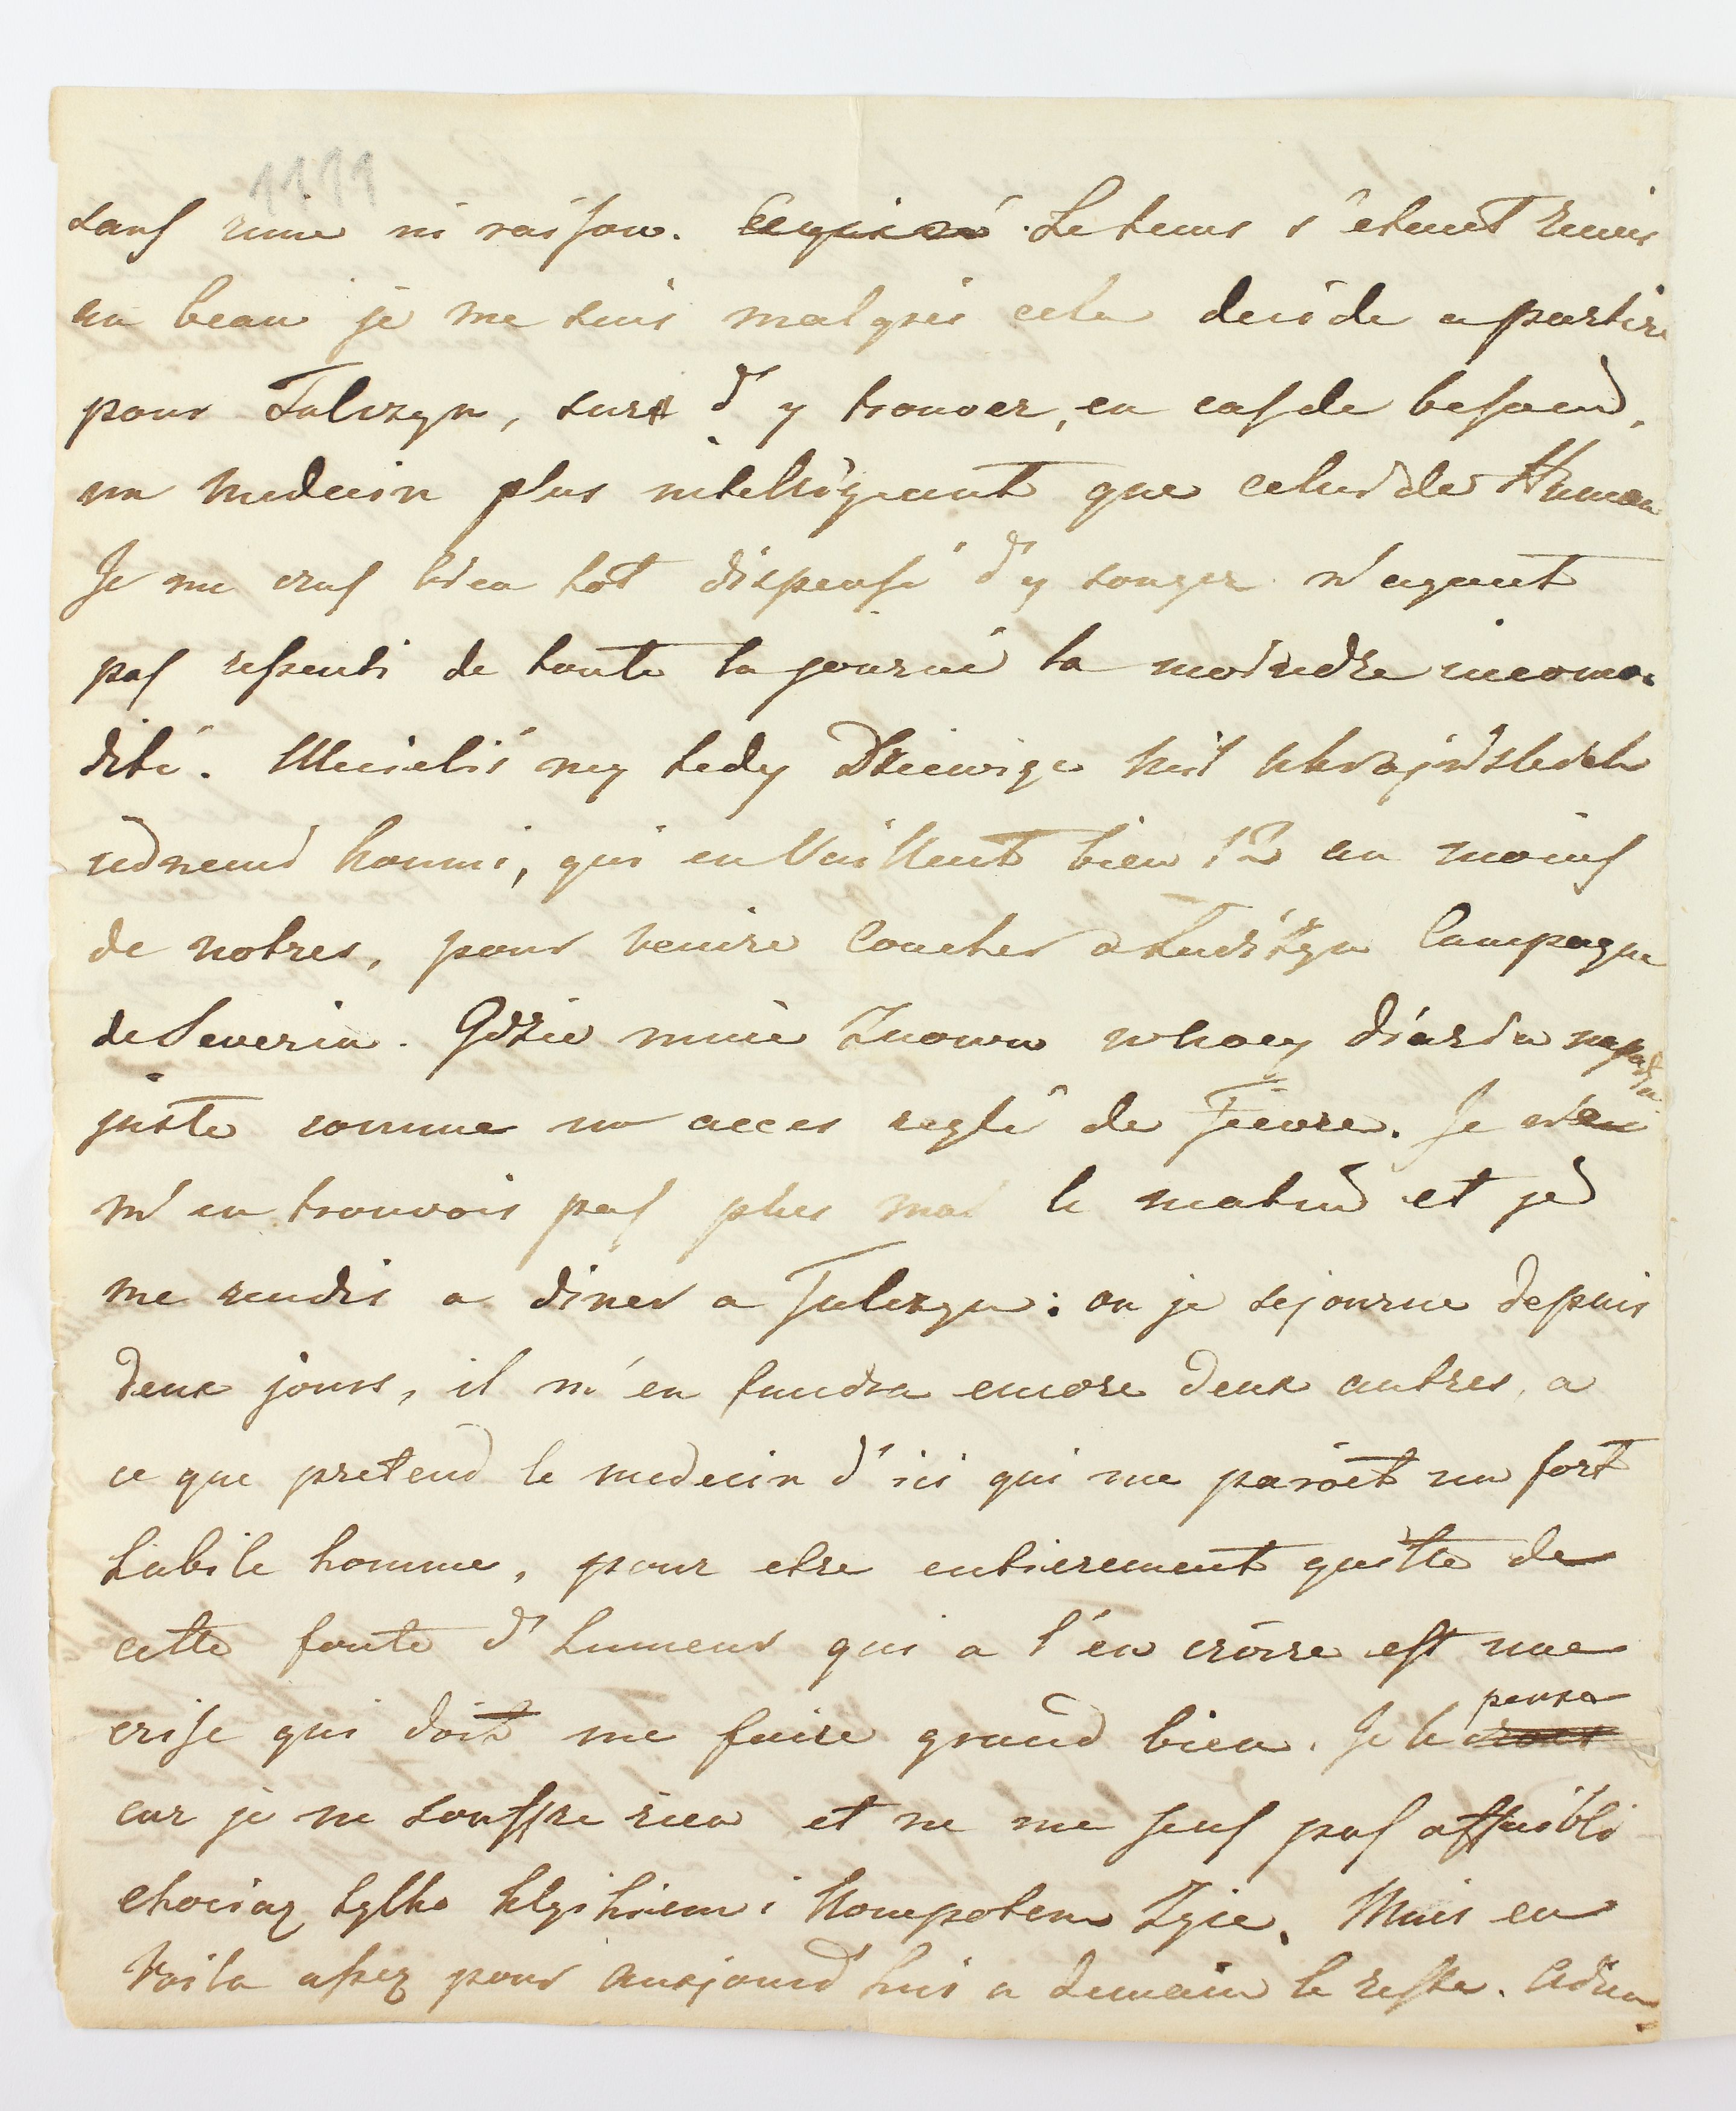 1119
sans rime ni raison. Le tems s'etant remis
au beau je me suis malgré cela decide a partire
pour Tulczyn, sur d'y trouver, en cas de besoend,
un medecin plus intelligeant que celui de Human
Je me crus bien tot dispensé d'y songer n'ayant
pas ressenti de toute la journé la moindre incomo-
dité. Ucieliś my tedy Dziewięc mil
hommi, qui en Vaillent bien 12 au moins
de notres, pour venire Coucher a Campagne
de Severin. Gdzie mnie Znowu w nocy diaria napadła
juste comme un acces reglé de Fievre. Je n'en
m'en trouvois pas plus mal le matin et je
me rendis a diner a Tulczyn: ou je sejourne depuis
deux jours, il m'en faudra encore deux autres, a
ce que pretend le medecin d'ici qui me paroit un fort
habile homme, pour etre entierement quitte de
cette fonte d'humeur qui a l'en croire est une
crise qui doit me faire grand bien. Je le pense
car je ne souffre rien et ne me sens pas affaibli
chociaz tylko kleikiem i kompotem Zyie. Mais en
Voila assez pour aurjourd'hui a demain le reste. Adieu